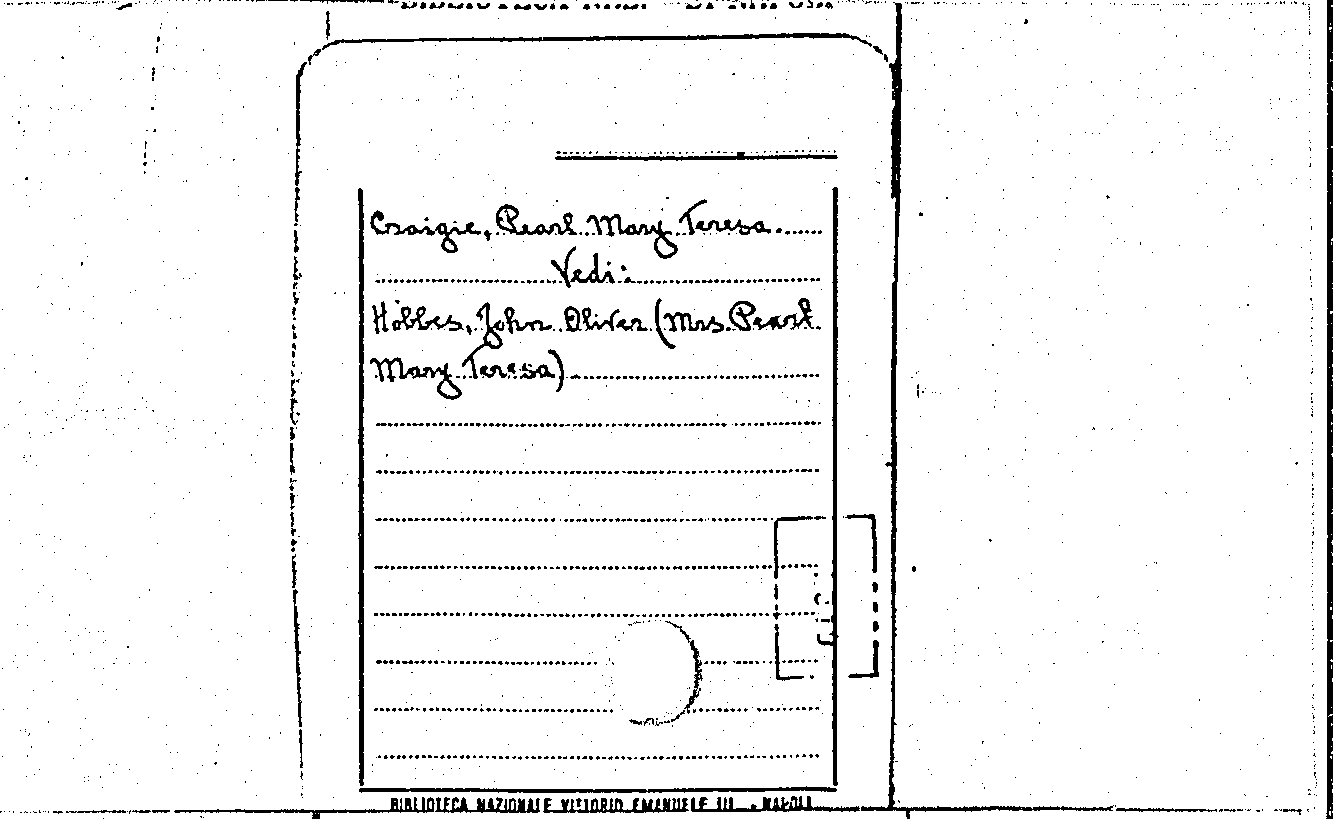 Craigie, Pearl Mary Teresa
Vedi:
Hobbes, John Oliver (Mrs. Pearl
Mary Teresa)
BIBLIOTECA NAZIONALE VITTORIO EMANUELE III - NAPOLI